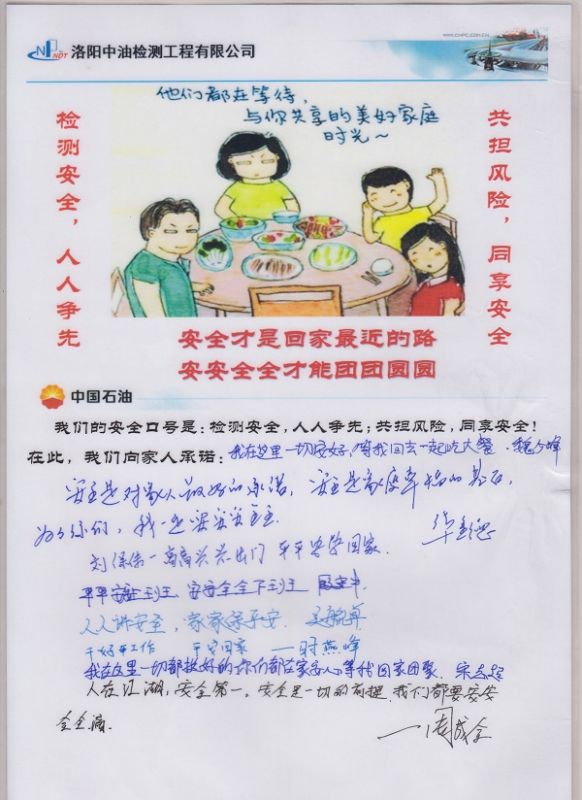 WWW.CNPC.COM.CN
NDT 洛阳中油检测工程有限公司
他们都在等待，
与你共享的美好家庭
时光～
检测安全，人人争先
共担风险，同享安全
安全才是回家最近的路
安安全全才能团团圆圆
中国石油
我们的安全口号是：检测安全，人人争先；共担风险，同享安全！
在此，我们向家人承诺：我在这里一切安好，等我回去一起吃大餐。
安全是对家人最好的承诺，安全是家庭幸福的基石，
为了你们，我一定安安全全。
高高兴兴出门 平平安安回家.
平平安安上班 安安全全下班
人人讲安全，家家保平安.
干好本工作 平安回家 —时燕峰
我在这里一切都挺好的你们都在家安心等我回家团聚.
人在江湖，安全第一，安全是一切的前提，我们都要安安
全全滴.
一周成全